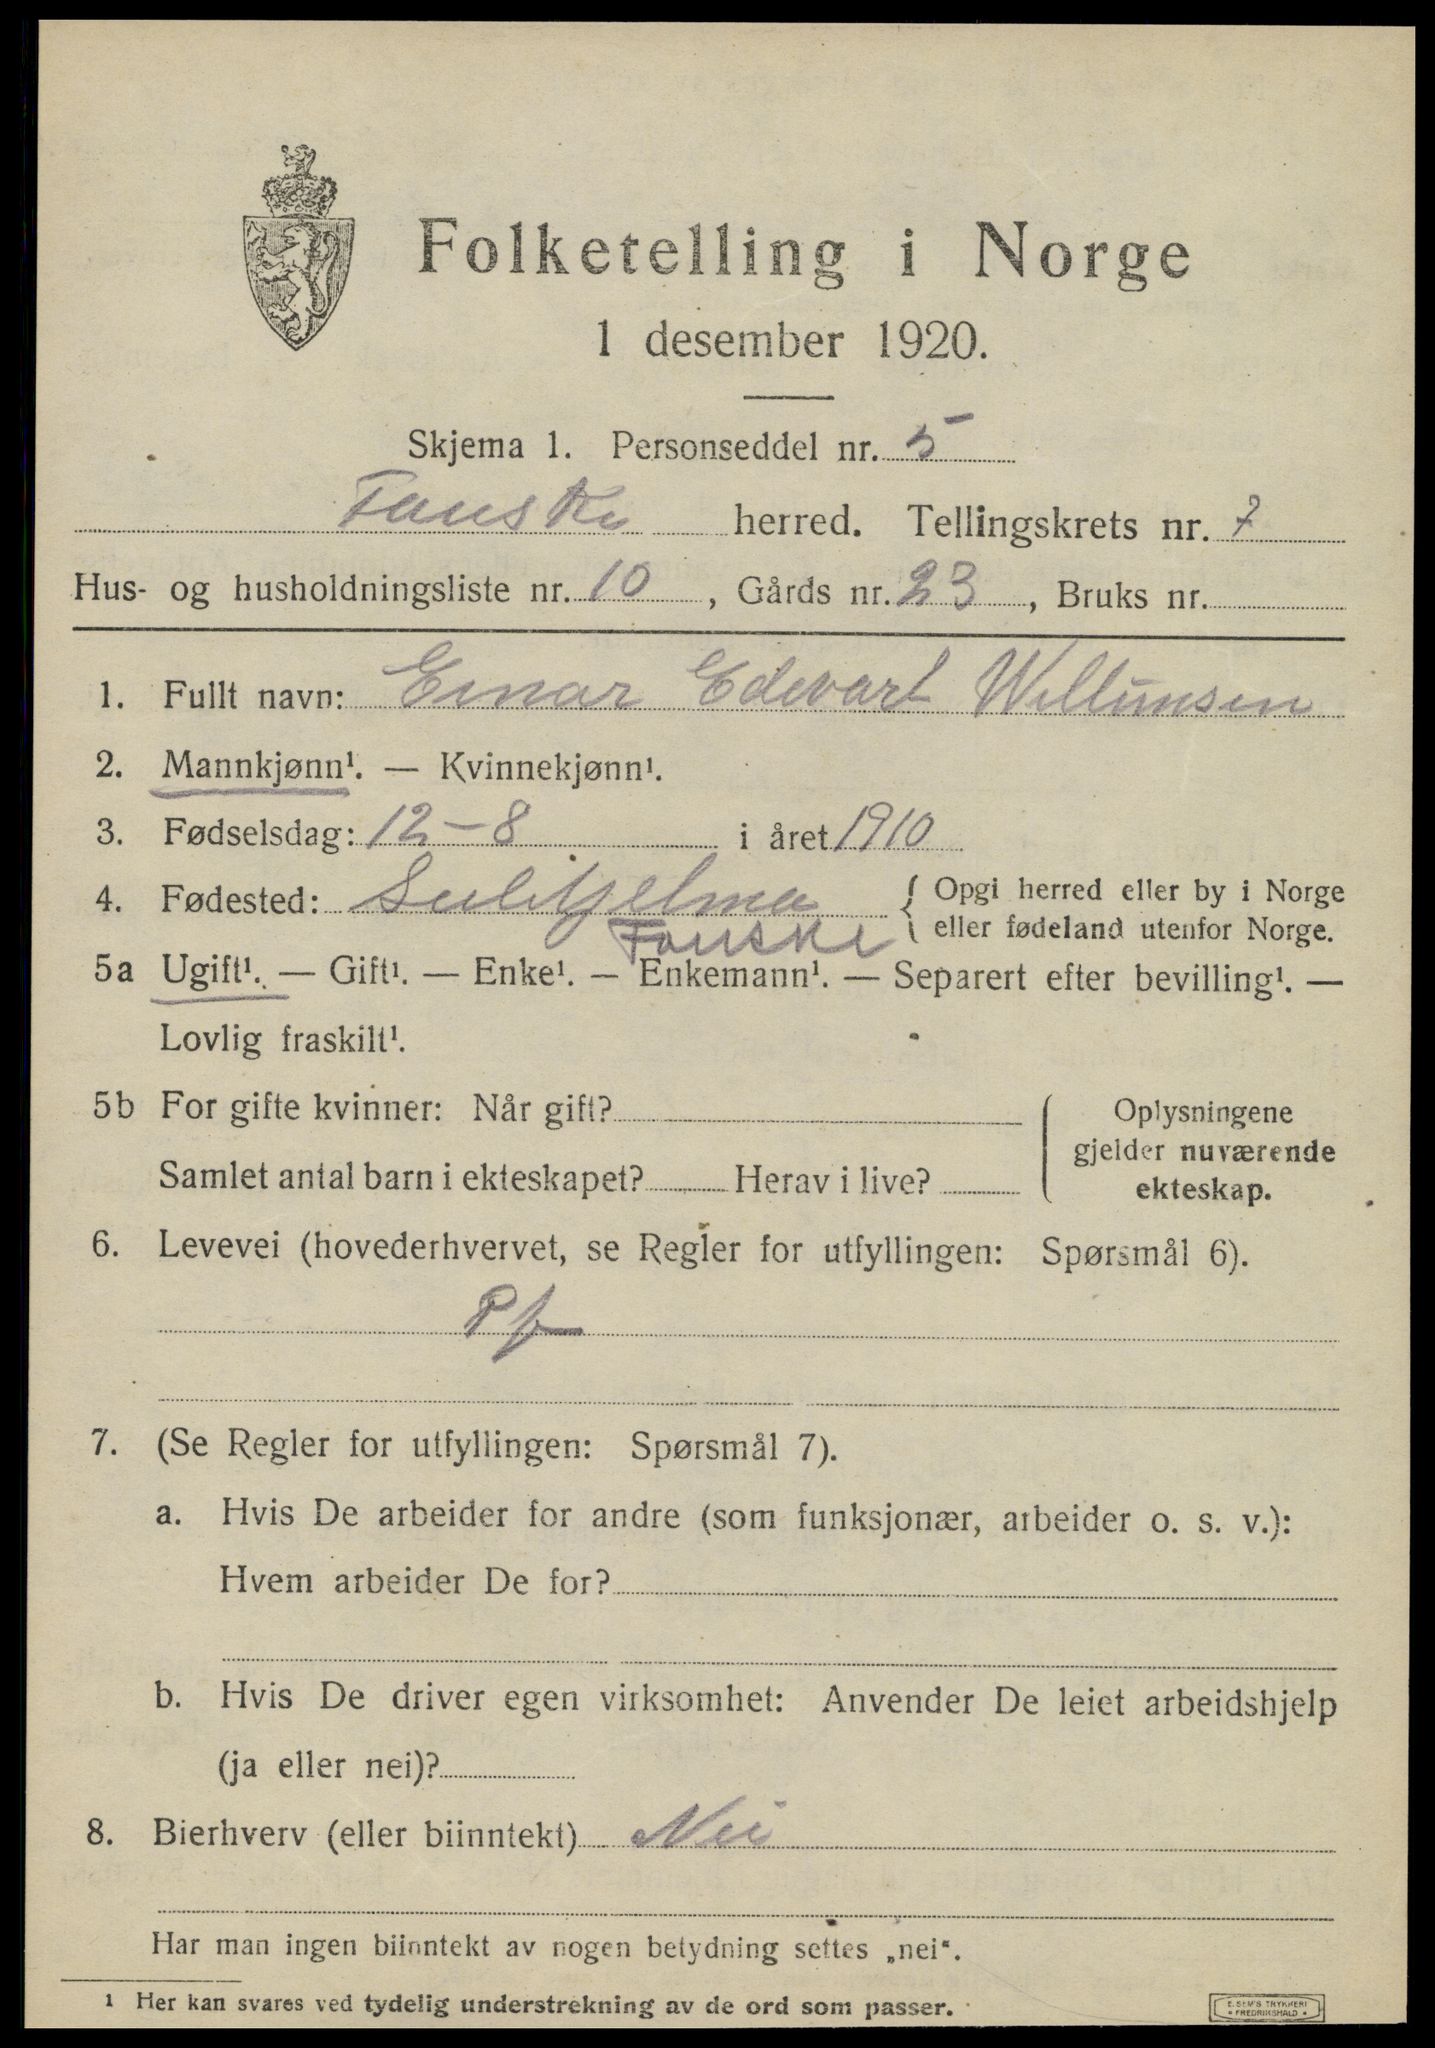 Folketelling i Norge
1 desember 1920.
Skjema 1. Personseddel nr. 5
Fauske herred. Tellingskrets nr. 7
Hus- og husholdningsliste nr. 10, Gårds nr. 23, Bruks nr.
1. Fullt navn: Einar Edevart Willumsen
2. Mannkjønn¹. — Kvinnekjønn¹.
3. Fødselsdag: 12-8 i året 1910
4. Fødested: Sulitjelma { Opgi herred eller by i Norge
Fauske eller fødeland utenfor Norge.
5a Ugift¹. — Gift¹. — Enke¹. — Enkemann¹. — Separert efter bevilling¹. —
Lovlig fraskilt¹.
5b For gifte kvinner: Når gift? Oplysningene
gjelder nuværende
Samlet antal barn i ekteskapet? Herav i live? ekteskap.
6. Levevei (hovederhvervet, se Regler for utfyllingen: Spørsmål 6).
Pf
7. (Se Regler for utfyllingen: Spørsmål 7).
a. Hvis De arbeider for andre (som funksjonær, arbeider o. s. v.):
Hvem arbeider De for?
b. Hvis De driver egen virksomhet: Anvender De leiet arbeidshjelp
(ja eller nei)?
8. Bierhverv (eller biinntekt) Nei
Har man ingen biinntekt av nogen betydning settes „nei“.
1 Her kan svares ved tydelig understrekning av de ord som passer.
E. SEM'S TRYKKERI
• FREDRIKSHALD •